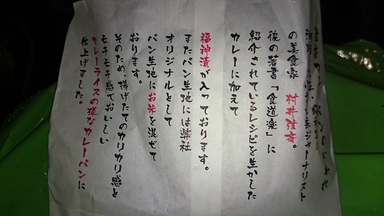 の美食家 村井弦斎。
後の著書「食道楽」に
紹介されているレシピを生かした
カレーに加えて
福神漬が入っております。
またパン生地には弊社
オリジナルとして
パン生地にお米を混ぜて
おります。
そのため、揚げたてのカリカリ感と
モチモチ感でおいしい
カレーライスの様なカレーパンに
仕上げました。